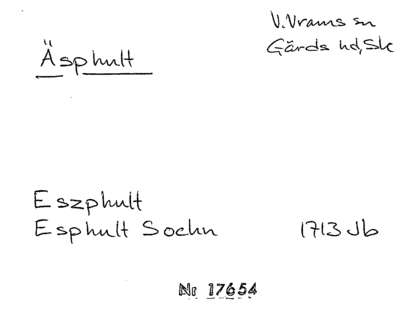 V. Vrams sn
Gärds hd, Sk
Äsphult
Eszphult
Esphult Sochn 1713 Jb
Nr 17654